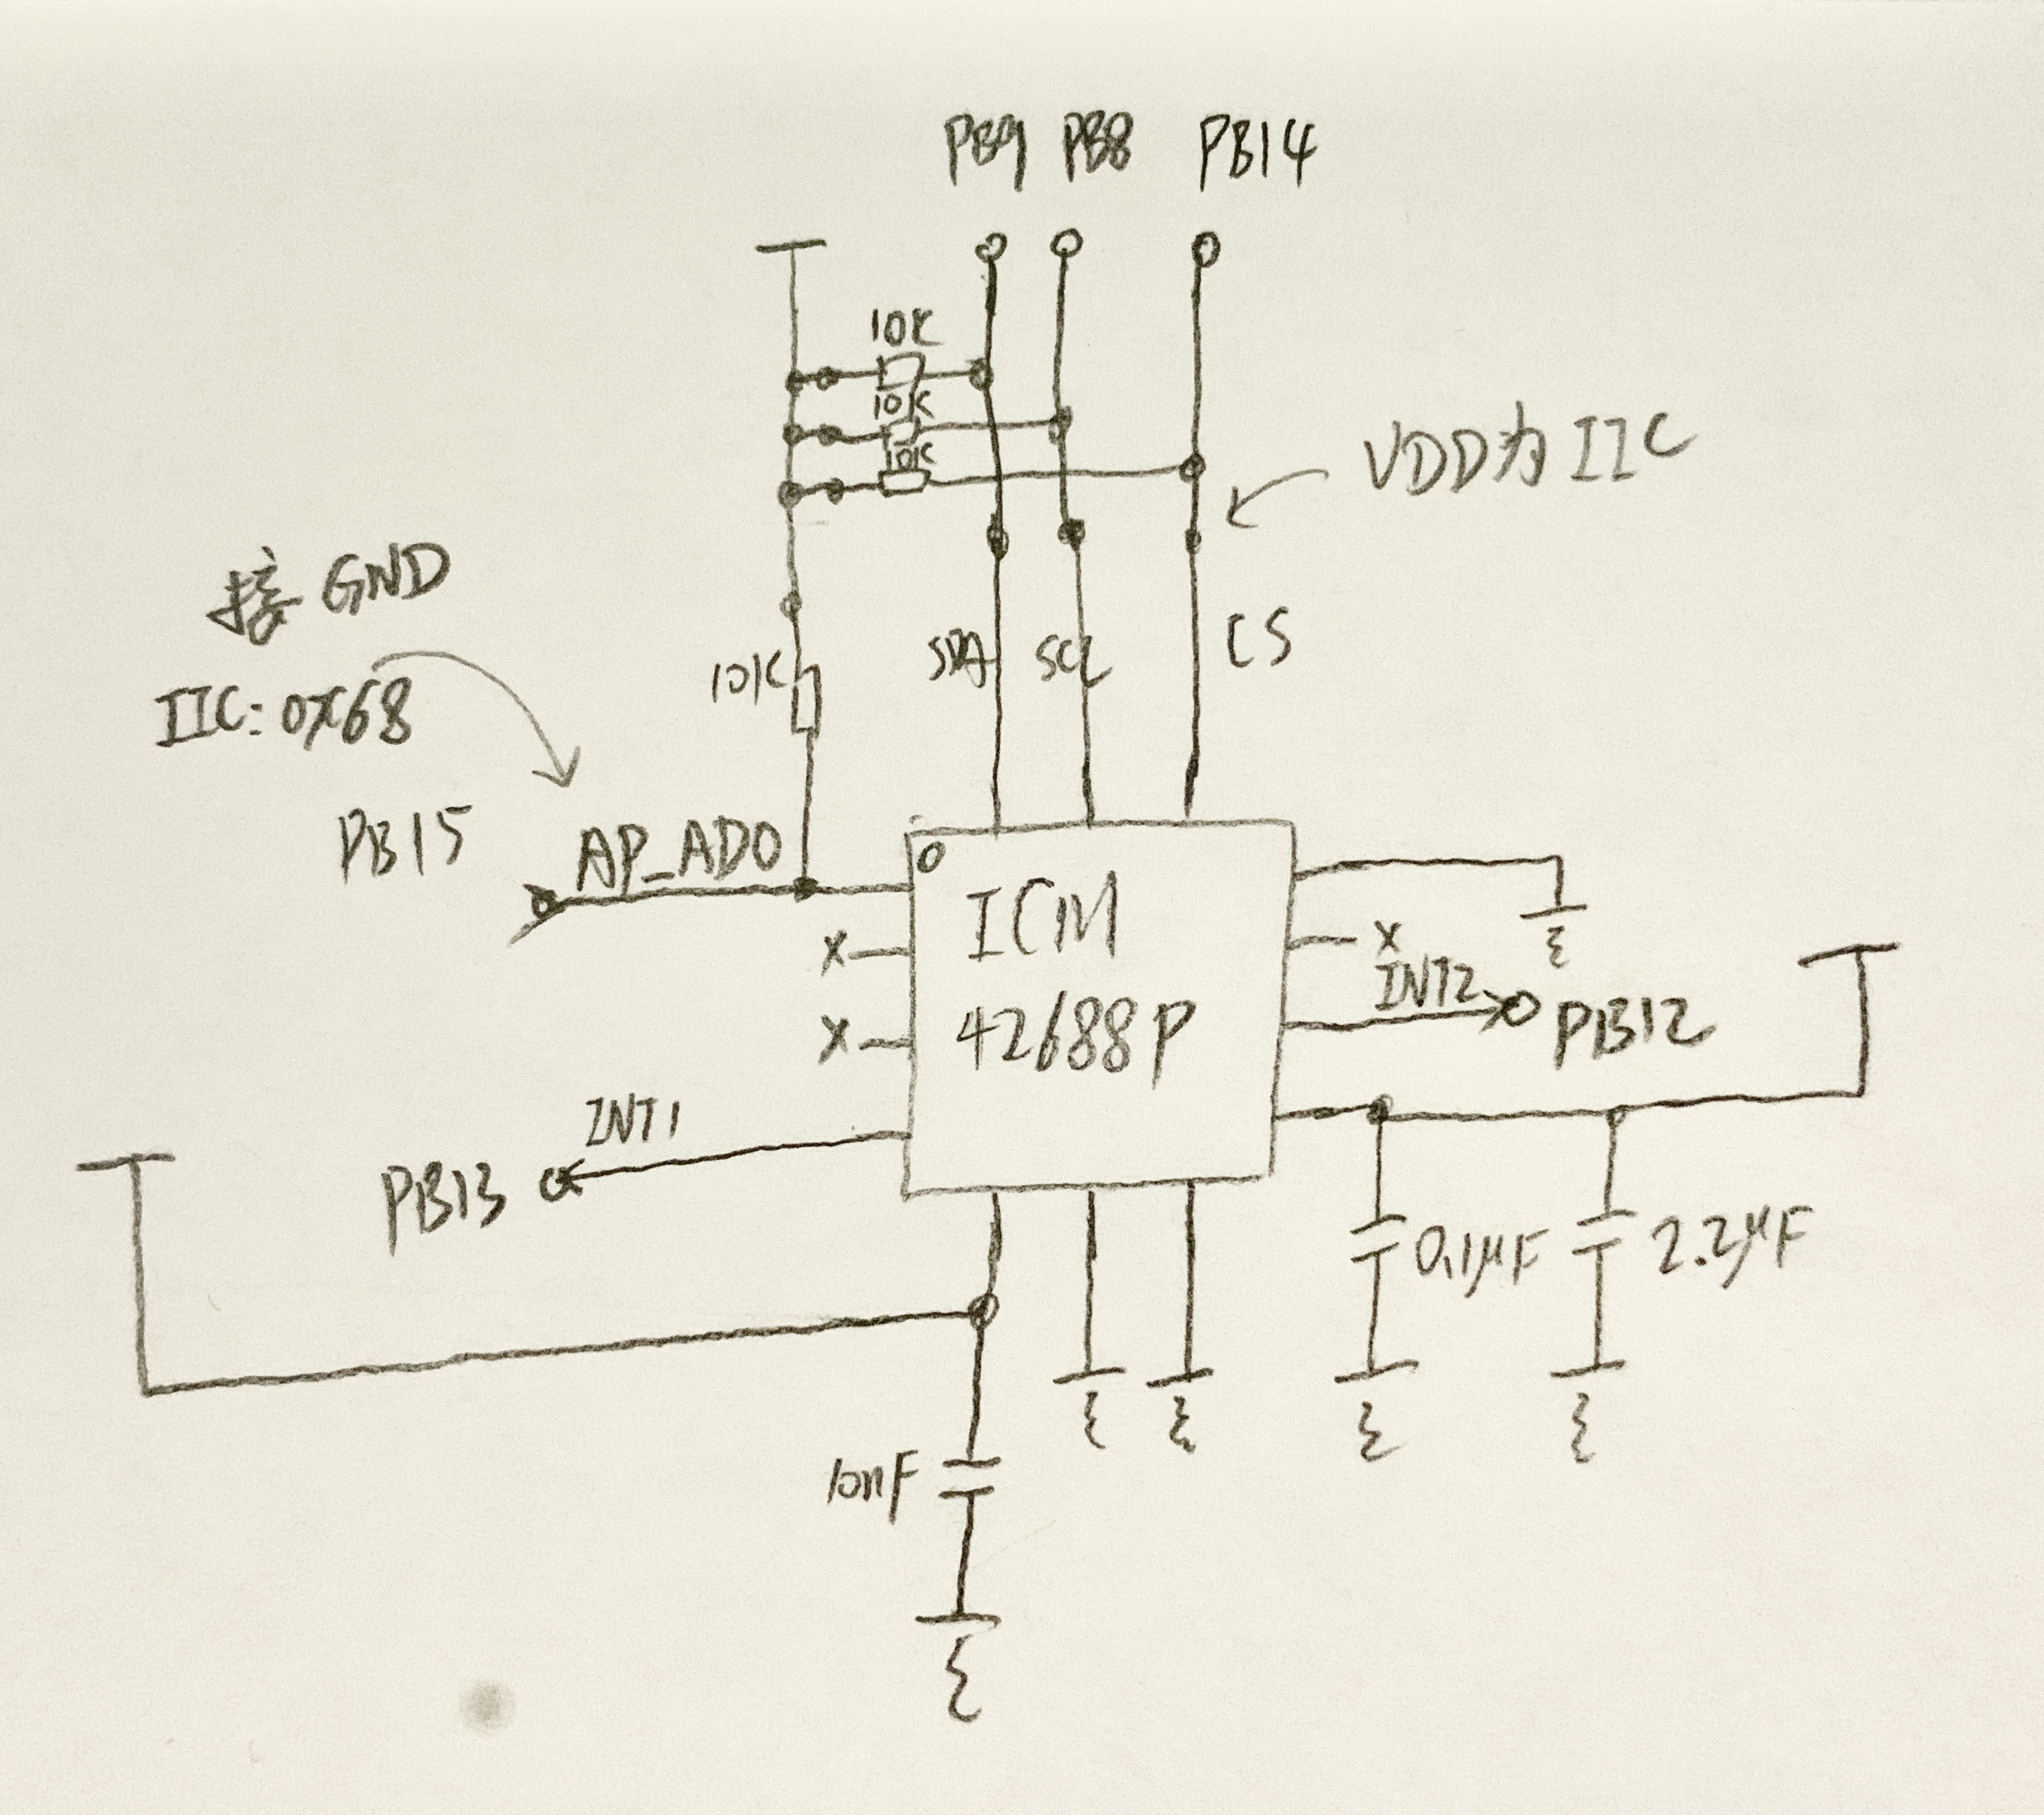 PB9 PB8 PB14
10K
10K
10K
VDD为IIC
接GND
IIC:0X68
10K
SDA SCL CS
PB15
AP_AD0
ICM
42688P
X
X
X
INT2
PB12
INT1
PB13
0.1μF
2.2μF
10nF